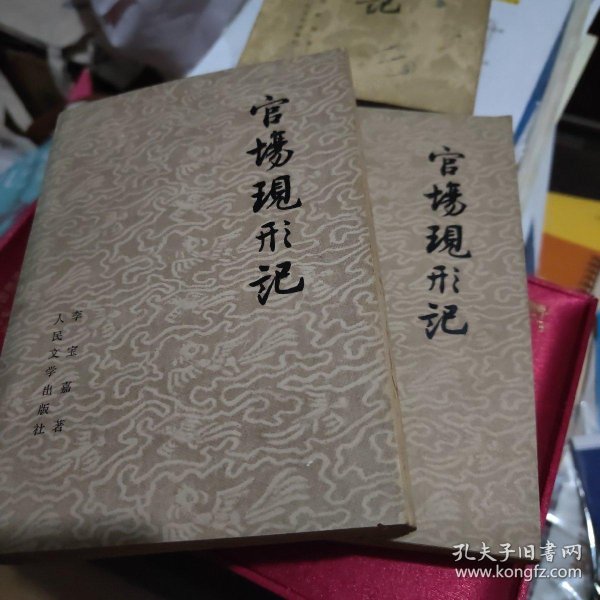 官場現形记
李宝嘉著
人民文学出版社
官場現形记
记
孔夫子旧书网
www.kongfz.com